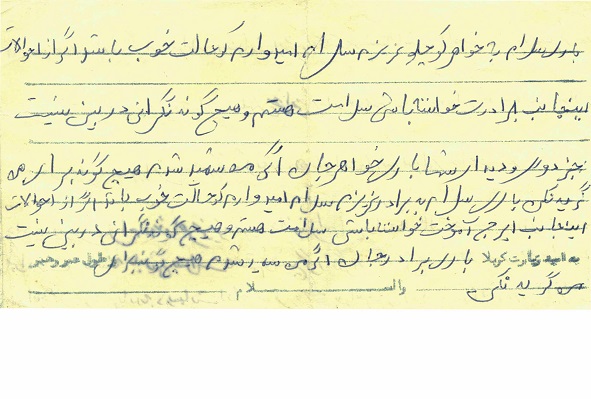 با سلام به خواهر کوچک و عزیزم سلام امیدوارم که حالت خوب باشد اگر از احوالات
اینجانب برادرت خواسته باشی سلامت هستم و هیچ گونه نگرانی در بین نیست
بجز دوری و دیدار شما باری خواهر جان اگر من شهید شدم هیچ گونه برای من
گریه نکن باری سلام به برادر عزیزم سلام امیدوارم که حالت خوب باشد اگر از احوالات
اینجانب ایرج آمرخت خواسته باشی سلامت هستم و هیچ گونه نگرانی در بین نیست
به امید زیارت کربلا باری برادر جان اگر من شهید شدم هیچ گونه برای طول عمر رهبر
من گریه نکن والسلام